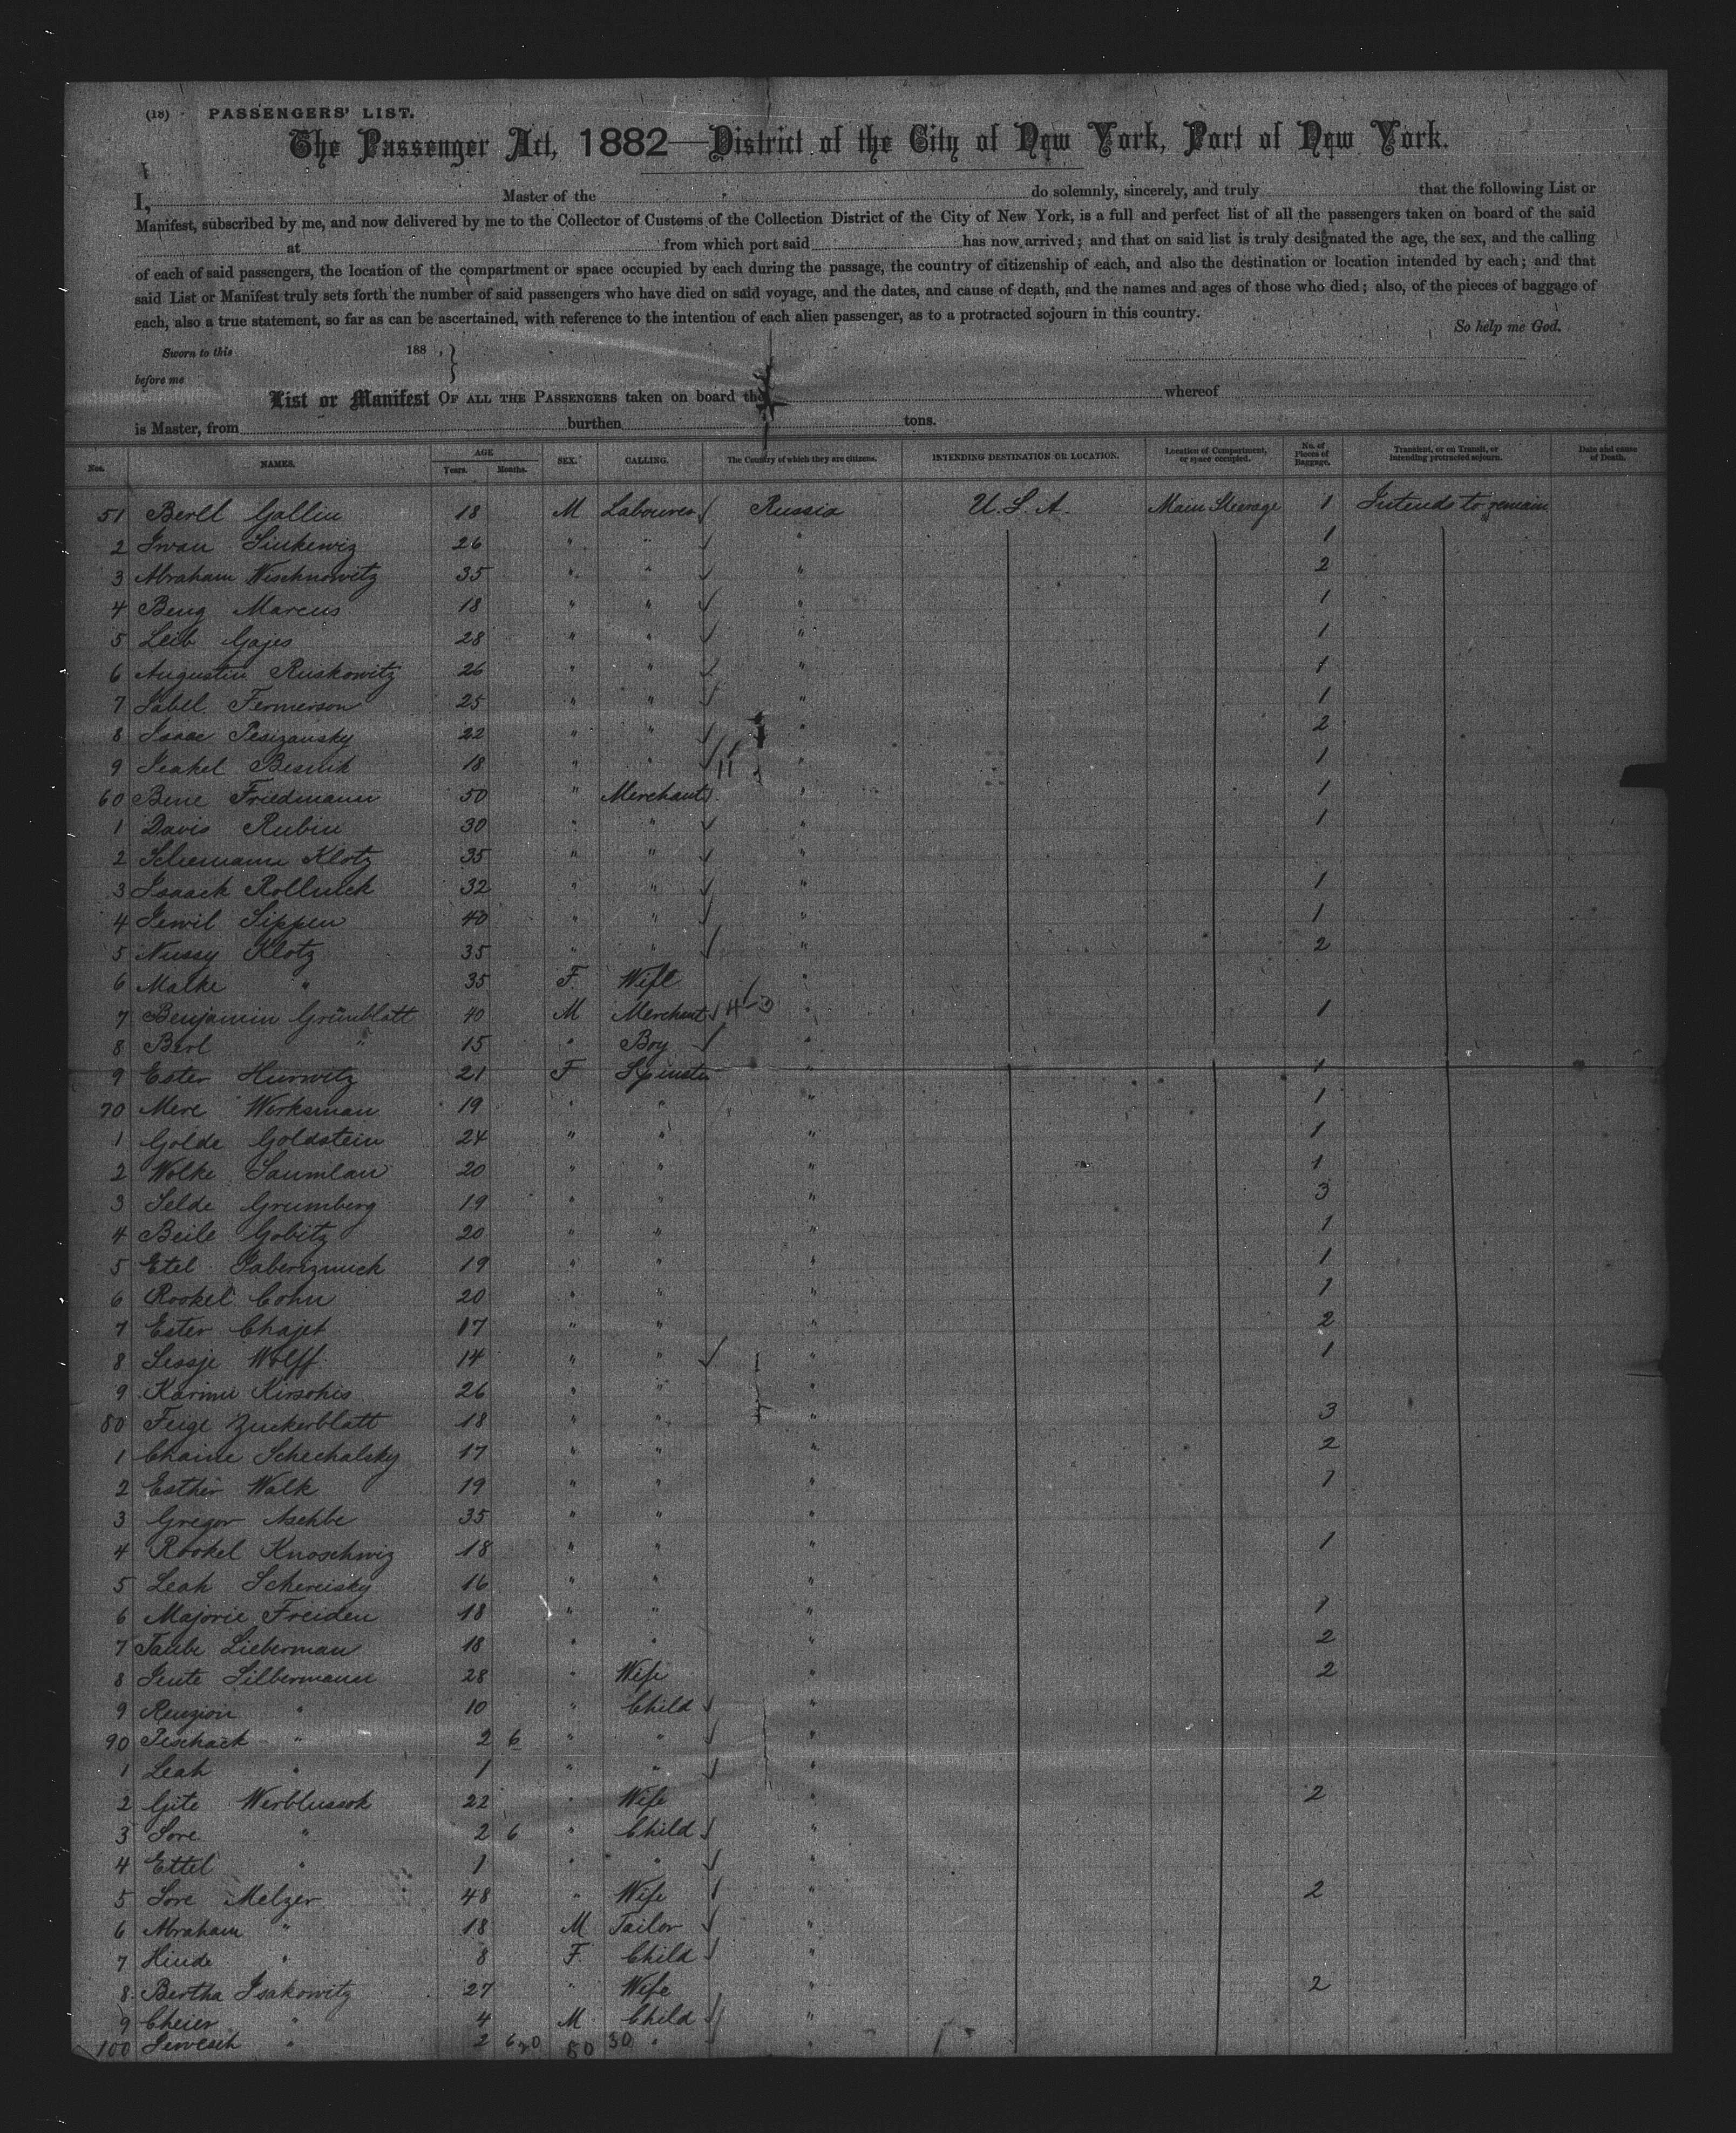 (18) PASSENGERS' LIST.
The Passenger Act, 1882—District of the City of New York, Port of New York.
I, Master of the do solemnly, sincerely, and truly that the following List or
Manifest, subscribed by me, and now delivered by me to the Collector of Customs of the Collection District of the City of New York, is a full and perfect list of all the passengers taken on board of the said
at from which port said has now arrived; and that on said list is truly designated the age, the sex, and the calling
of each of said passengers, the location of the compartment or space occupied by each during the passage, the country of citizenship of each, and also the destination or location intended by each; and that
said List or Manifest truly sets forth the number of said passengers who have died on said voyage, and the dates, and cause of death, and the names and ages of those who died; also, of the pieces of baggage of
each, also a true statement, so far as can be ascertained, with reference to the intention of each alien passenger, as to a protracted sojourn in this country.
So help me God.
Sworn to this 188 ,
before me
List or Manifest OF ALL THE PASSENGERS taken on board the whereof
is Master, from burthen tons.
Nos. NAMES. AGE Years. Months. SEX. CALLING. The Country of which they are citizens. INTENDING DESTINATION OR LOCATION. Location of Compartment, or space occupied. No. of Pieces of Baggage. Transient, or on Transit, or intending protracted sojourn. Date and cause of Death.
51 Berll Gallin 18 M Labourer Russia U.S.A. Main Steerage 1 Intends to remain
2 Iwan Sinkewiz 26 " " " 1
3 Abraham Wischnowitz 35 " " " 2
4 Beng Marcus 18 " " " 1
5 Leib Gajes 28 " " " 1
6 Augustin Ruskowitz 26 " " " 1
7 Sabel Fermerson 25 " " " 1
8 Isaac 22 " " " 2
9 18 " " 11 " 1
60 Bene Friedmann 50 " Merchant " 1
1 Davis Rubin 30 " " " 1
2 Klotz 35 " " "
3 Isaack Rollnick 32 " " " 1
4 Sippen 40 " " " 1
5 Nussy Klotz 35 " " " 2
6 Malke " 35 F Wife "
7 Benjamin Grünblatt 40 M Merchant 4-3 " 1
8 Berl " 15 " Boy "
9 Ester Hurwitz 21 F Spinster " 1
70 Mere Worksman 19 " " " 1
1 Golde Goldstein 24 " " " 1
2 Wolke Saumlau 20 " " " 1
3 Selde Grumberg 19 " " " 3
4 Beile Gobitz 20 " " " 1
5 Etel 19 " " " 1
6 Rookel Cohn 20 " " " 1
7 Ester Chajet 17 " " " 2
8 Sessje Wolff 14 " " " 1
9 26 " " "
80 Feige Zuckerblatt 18 " " " 3
1 Chaine Schechalsky 17 " " " 2
2 Esther Walk 19 " " " 1
3 Gregor Aschbe 35 " " "
4 Rookel Knoschwiz 18 " " " 1
5 Leah Schereisky 16 " " "
6 Majorie Freiden 18 " " " 1
7 Taube Lieberman 18 " " " 2
8 Silbermann 28 " Wife " 2
9 " 10 " Child "
90 " 2 6 " " "
1 Leah " 1 " " "
2 Gite Werblussok 22 " Wife " 2
3 Sore " 2 6 " Child "
4 Ettel " 1 " " "
5 Sore Melzer 48 " Wife " 2
6 Abraham " 18 M Tailor "
7 Hinde " 8 F Child "
8 Bertha Isakowitz 27 " Wife " 2
9 Cheier " 4 M Child "
100 " 2 6 20 50 30 " "